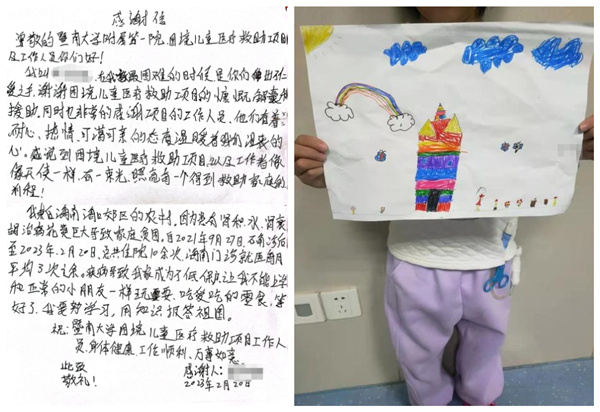 感谢信
尊敬的暨南大学附属第一院困境儿童医疗救助项目
及工作人员你们好！
我叫 在我最困难的时候是你们伸出仁
爱之手，谢谢困境儿童医疗救助项目的慷慨解囊
援助，同时也非常的感谢项目的工作人员，他们有着
耐心、热情、可
的态度温暖着我们
的
心。感觉到困境儿童医疗救助项目以及工作者像
像天使一样，有一束光，照亮每一个得到救助家庭的
前程！
我越
海南
郊区的农村，因为患有肾积水、肾衰
治病花费巨大导致家庭贫困。自2021年9月27日
至2023年2月20日，总共住院10余次，
门诊就医每月
平均3次之余。疾病导致我家成为了低保，让我不能上学
和正常的小朋友一样玩耍、吃爱吃的零食，等
好了，我要努力学习，用知识报答祖国。
祝：暨南大学困境儿童医疗救助项目工作人
员，身体健康、工作顺利、万事如意。
此致
敬礼！
感谢人：
2023年2月20日